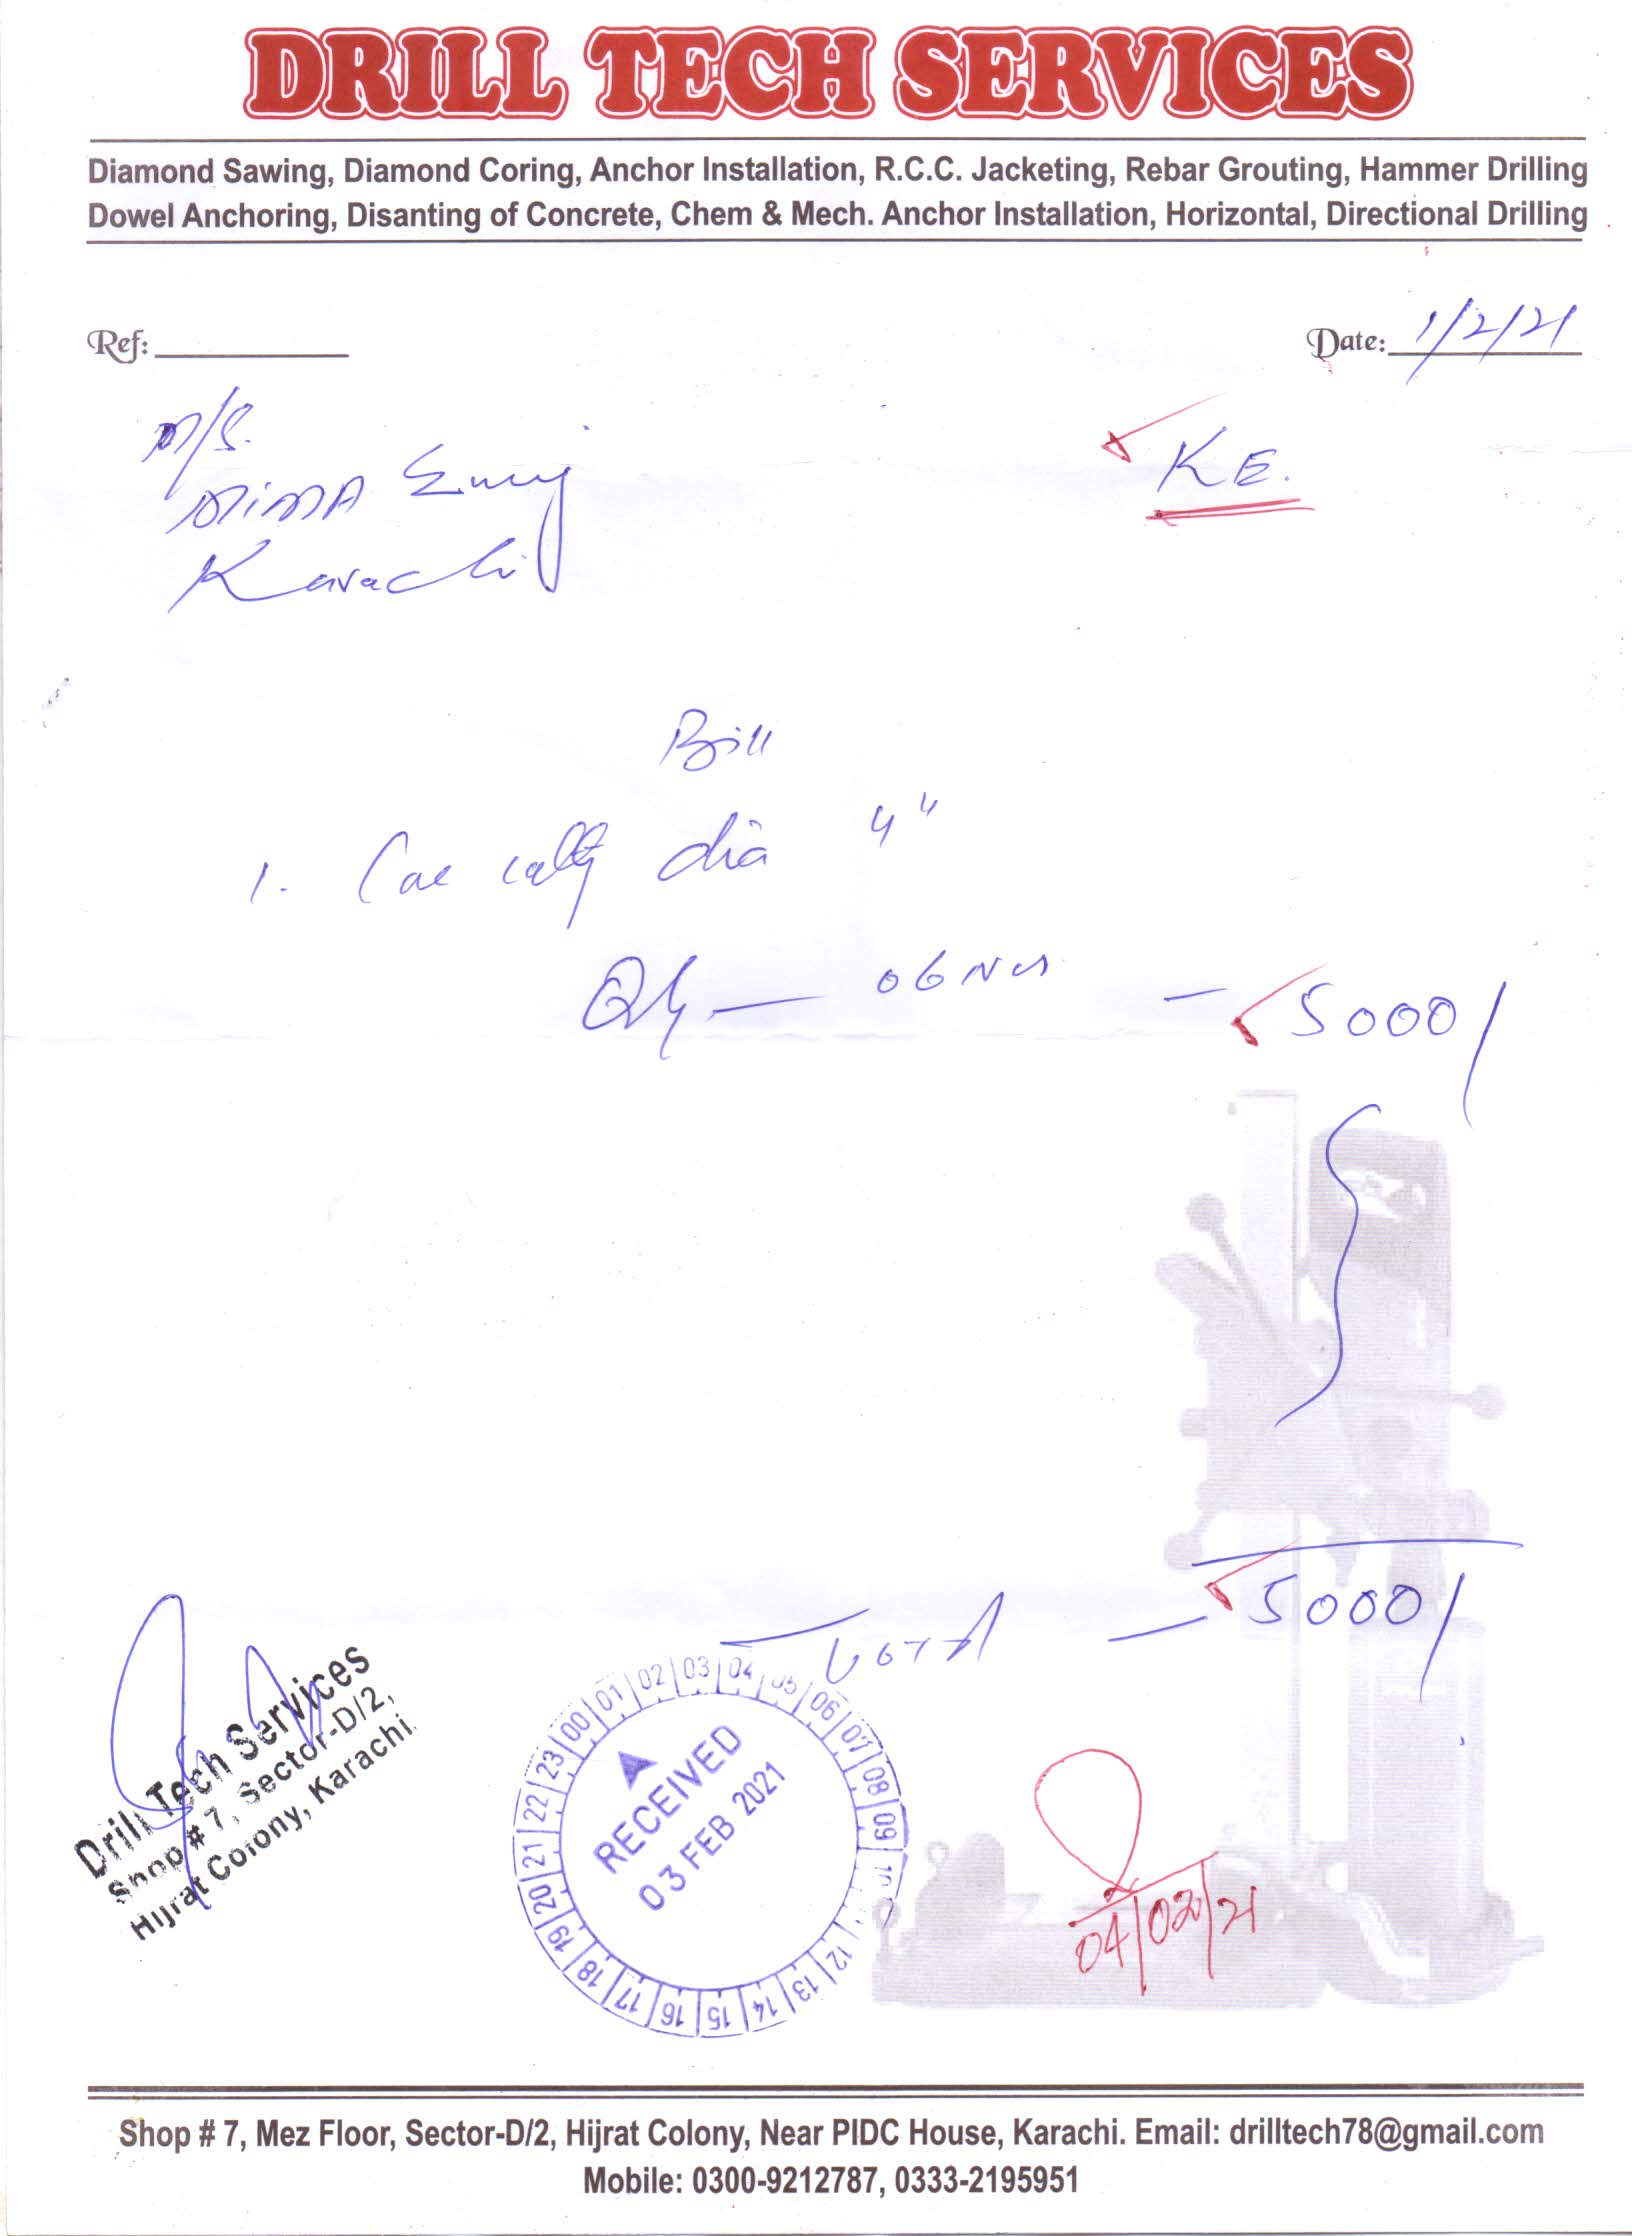 DRILL TECH SERVICES
Diamond Sawing, Diamond Coring, Anchor Installation, R.C.C. Jacketing, Rebar Grouting, Hammer Drilling
Dowel Anchoring, Disanting of Concrete, Chem & Mech. Anchor Installation, Horizontal, Directional Drilling
Ref: Date: 1/2/21
M/S.
KE.
Karachi
Bill
1. Core dia 4"
Qty — 06 Nos — 5000/
Total — 5000/
Drill Tech Services
Shop # 7, Sector-D/2,
Hijrat Colony, Karachi.
00 01 02 03 04 05 06 07 08 09 10 12 13 14 15 16 17 18 19 20 21 22 23
RECEIVED
03 FEB 2021
04/02/21
Shop # 7, Mez Floor, Sector-D/2, Hijrat Colony, Near PIDC House, Karachi. Email: drilltech78@gmail.com
Mobile: 0300-9212787, 0333-2195951